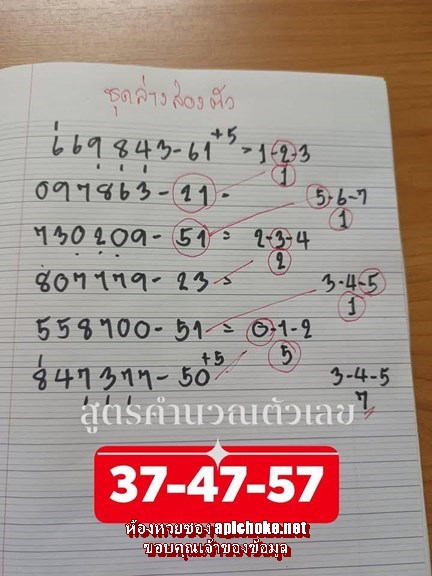 ชุดล่างสองตัว
669843-61 +5 = 1-2-3
1
097863-21
5-6-7
1
730209-51 = 2-3-4
2
807779-23
3-4-5
1
558700-51 = 0-1-2
5
847377-50 +5
3-4-5
7
สูตรคำนวณตัวเลข
37-47-57
ห้องหวยซอง aplchoke.net
ขอบคุณเจ้าของข้อมูล